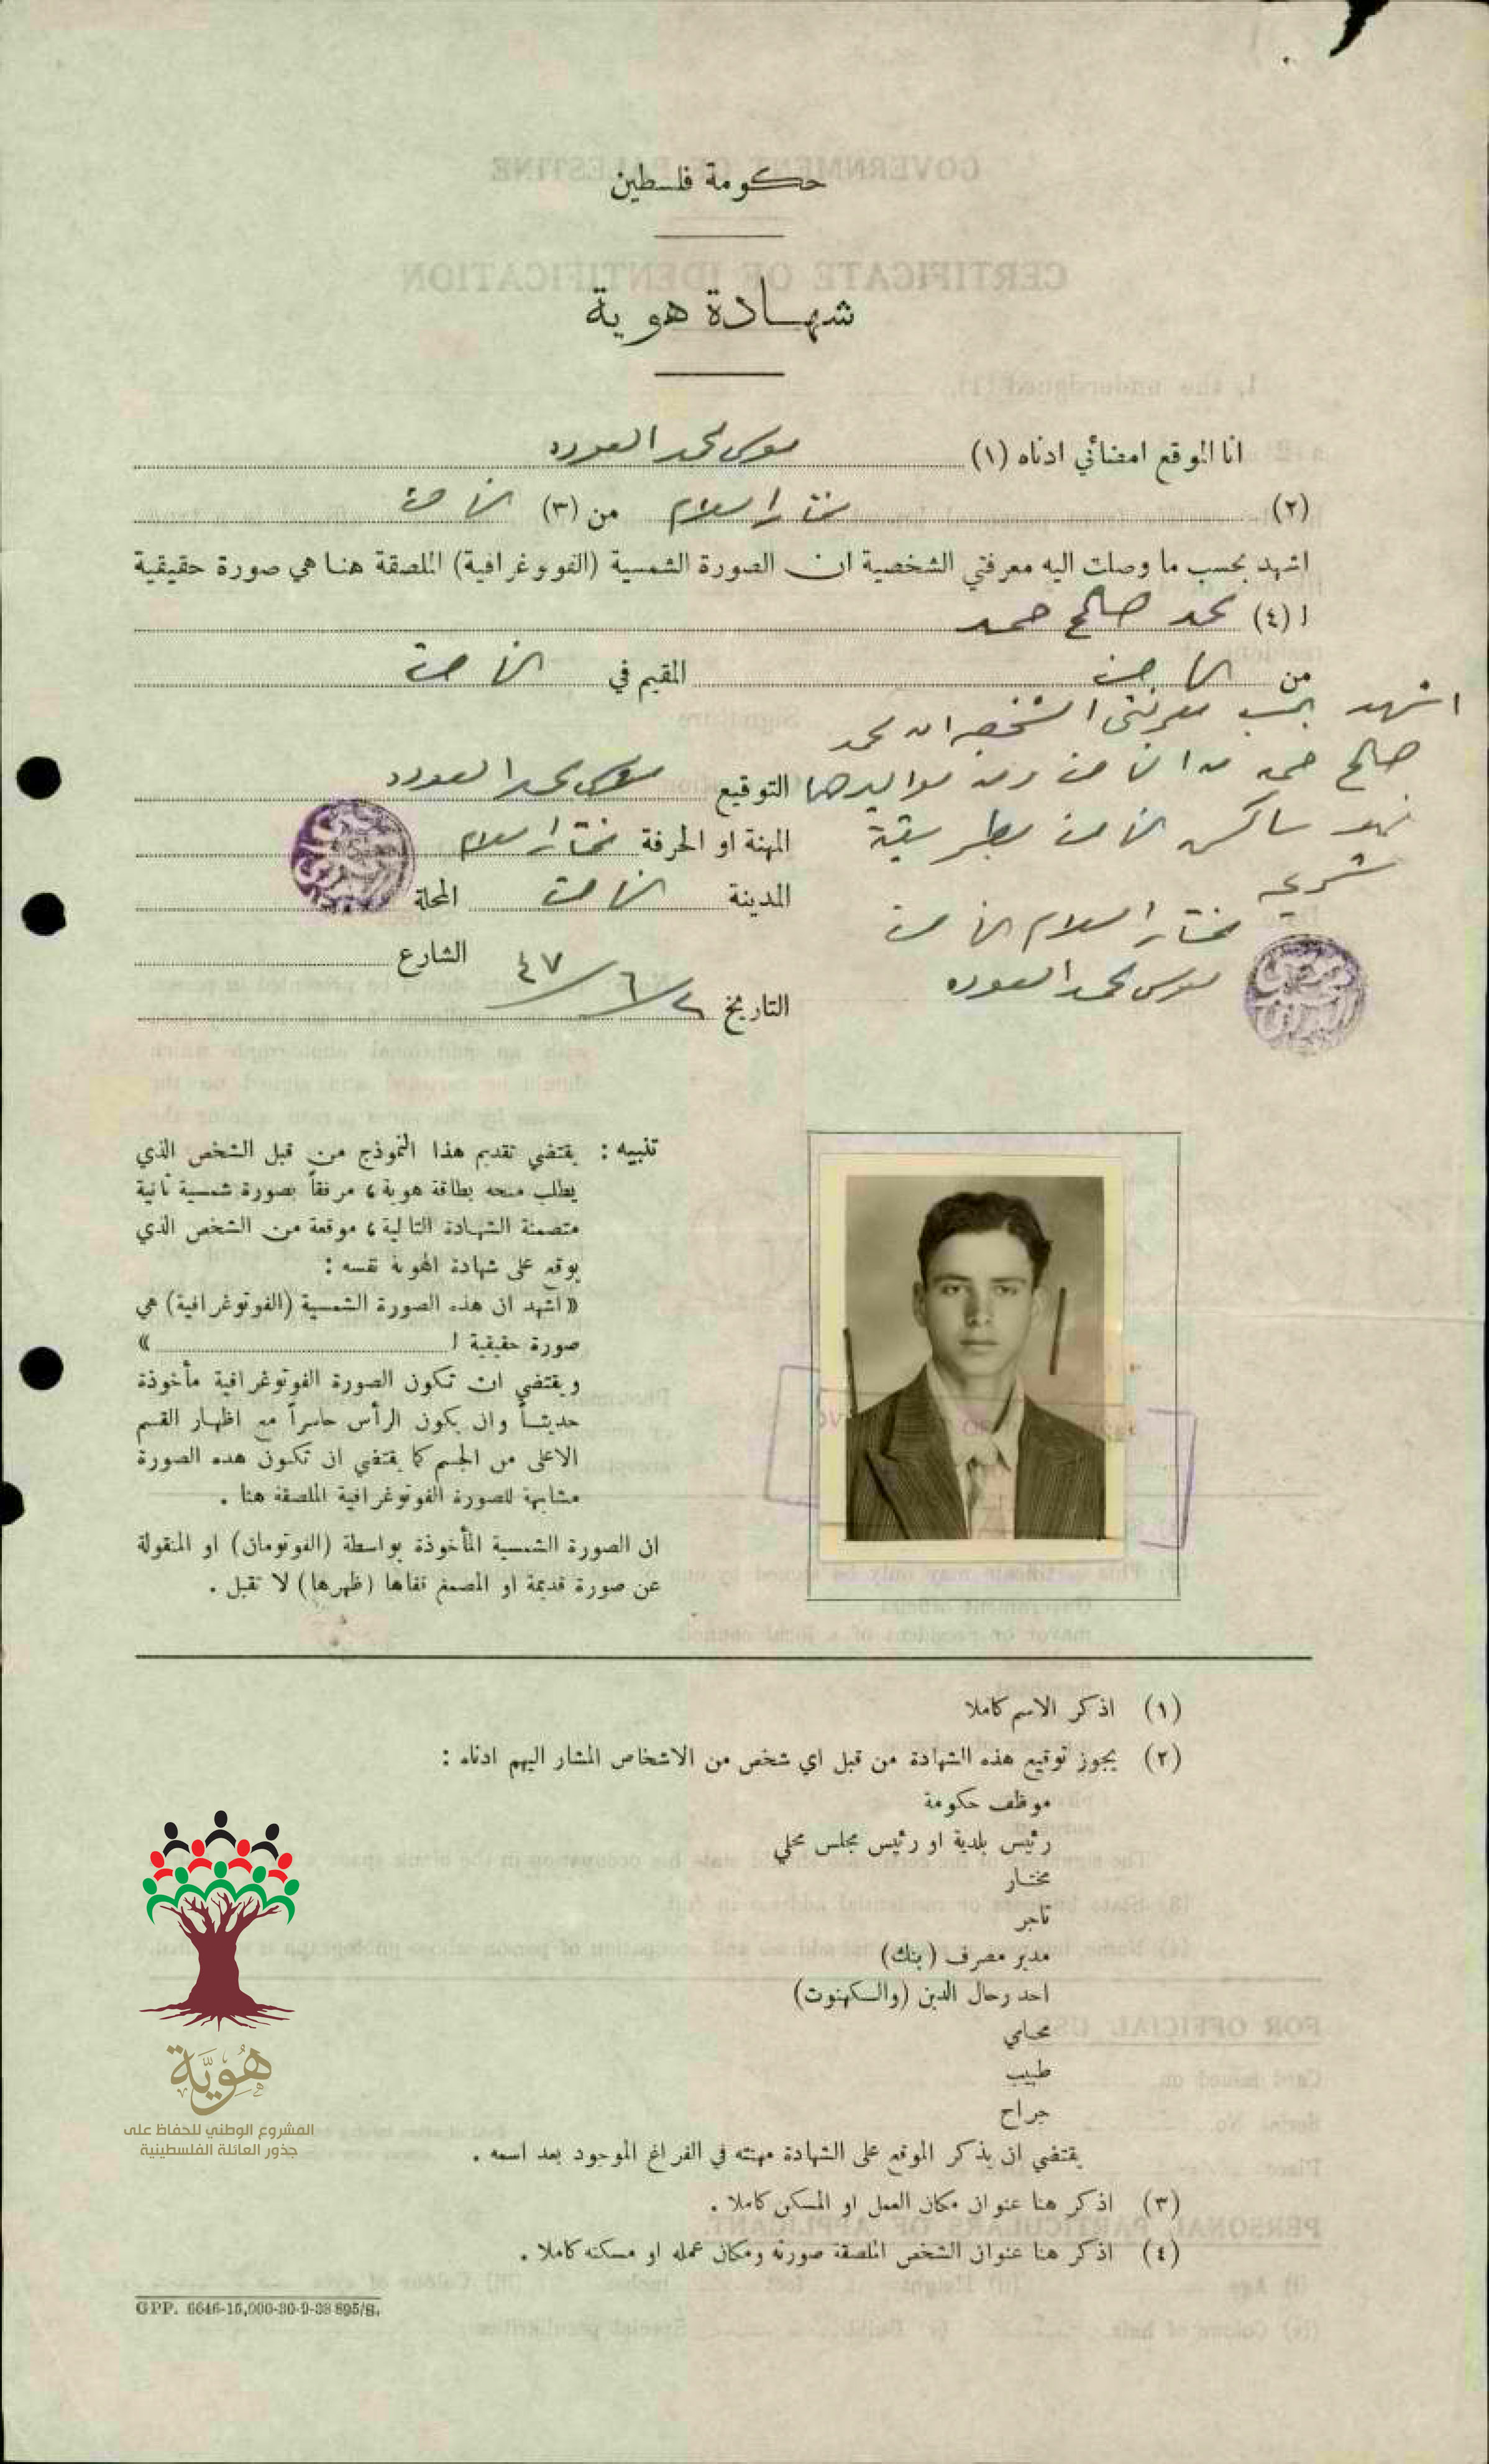 حكومة فلسطين
شهادة هوية
انا الموقع امضائي ادناه (١) موسى محمد العوده
(٢) مختار اسلام من (٣) الناصرة
اشهد بحسب ما وصلت اليه معرفتي الشخصية ان الصورة الشمسية (الفوتوغرافية) الملصقة هنا هي صورة حقيقية
ا (٤) محمد صالح حمد
من الناصرة المقيم في الناصرة
اشهد بحسب معرفتي الشخصيه ان محمد
صالح حمد من الناصرة ومن مواليدها
ساكن الناصرة بطريقة
شرعيه
مختار اسلام الناصرة
موسى محمد العوده
التوقيع موسى محمد العوده
المهنة او الحرفة مختار اسلام
المدينة الناصرة المحلة
الشارع
التاريخ ٢/٦/٤٧
تنبيه : يقتضي تقديم هذا النموذج من قبل الشخص الذي
يطلب منحه بطاقة هوية ، مرفقاً بصورة شمسية ثانية
متضمنة الشهادة التالية ، موقعة من الشخص الذي
يوقع على شهادة الهوية نفسه :
« اشهد ان هذه الصورة الشمسية (الفوتوغرافية) هي
صورة حقيقية ا »
ويقتضي ان تكون الصورة الفوتوغرافية مأخوذة
حديثاً وان يكون الرأس حاسراً مع اظهار القسم
الاعلى من الجسم كما يقتضي ان تكون هذه الصورة
مشابهة للصورة الفوتوغرافية الملصقة هنا .
ان الصورة الشمسية المأخوذة بواسطة (الفوتومان) او المنقولة
عن صورة قديمة او المصمغ قفاها (ظهرها) لا تقبل .
(١) اذكر الاسم كاملا
(٢) يجوز توقيع هذه الشهادة من قبل اي شخص من الاشخاص المشار اليهم ادناه :
موظف حكومة
رئيس بلدية او رئيس مجلس محلي
مختار
تاجر
مدير مصرف (بنك)
احد رجال الدين (والكهنوت)
محامي
طبيب
جراح
يقتضي ان يذكر الموقع على الشهادة مهنته في الفراغ الموجود بعد اسمه .
(٣) اذكر هنا عنوان مكان العمل او المسكن كاملا .
(٤) اذكر هنا عنوان الشخص الملصقة صورته ومكان عمله او مسكنه كاملا .
GPP. 6646-15,000-30-9-38 895/S.
هُوِيَّة
المشروع الوطني للحفاظ على
جذور العائلة الفلسطينية